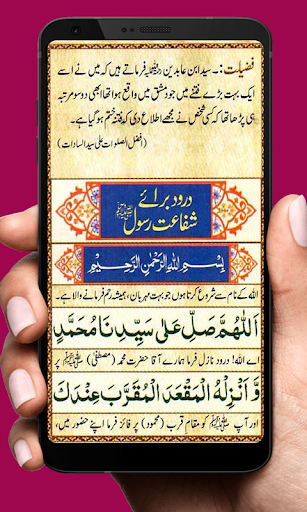 فضیلت:۔ سید ابن عابدین رحمۃ اللہ علیہ فرماتے ہیں کہ میں نے اسے
ایک بہت بڑے فتنے میں جو دمشق میں واقع ہوا تھا ابھی دو سو مرتبہ
ہی پڑھا تھا کہ کسی شخص نے مجھے اطلاع دی کہ فتنہ ختم ہو گیا ہے۔
(افضل الصلوات علی سید السادات)
درود برائے
شفاعت رسول ﷺ
بِسْمِ اللهِ الرَّحْمٰنِ الرَّحِيْمِ
اللہ کے نام سے شروع کرتا ہوں جو بہت مہربان، ہمیشہ رحم فرمانے والا ہے۔
اَللّٰهُمَّ صَلِّ عَلٰى سَيِّدِنَا مُحَمَّدٍ
اے اللہ! درود نازل فرما ہمارے آقا حضرت محمد (مصطفیٰ) ﷺ پر
وَّ اَنْزِلْهُ الْمَقْعَدَ الْمُقَرَّبَ عِنْدَكَ
اور آپ ﷺ کو مقام قرب (محمود) پر فائز فرما اپنے حضور میں،